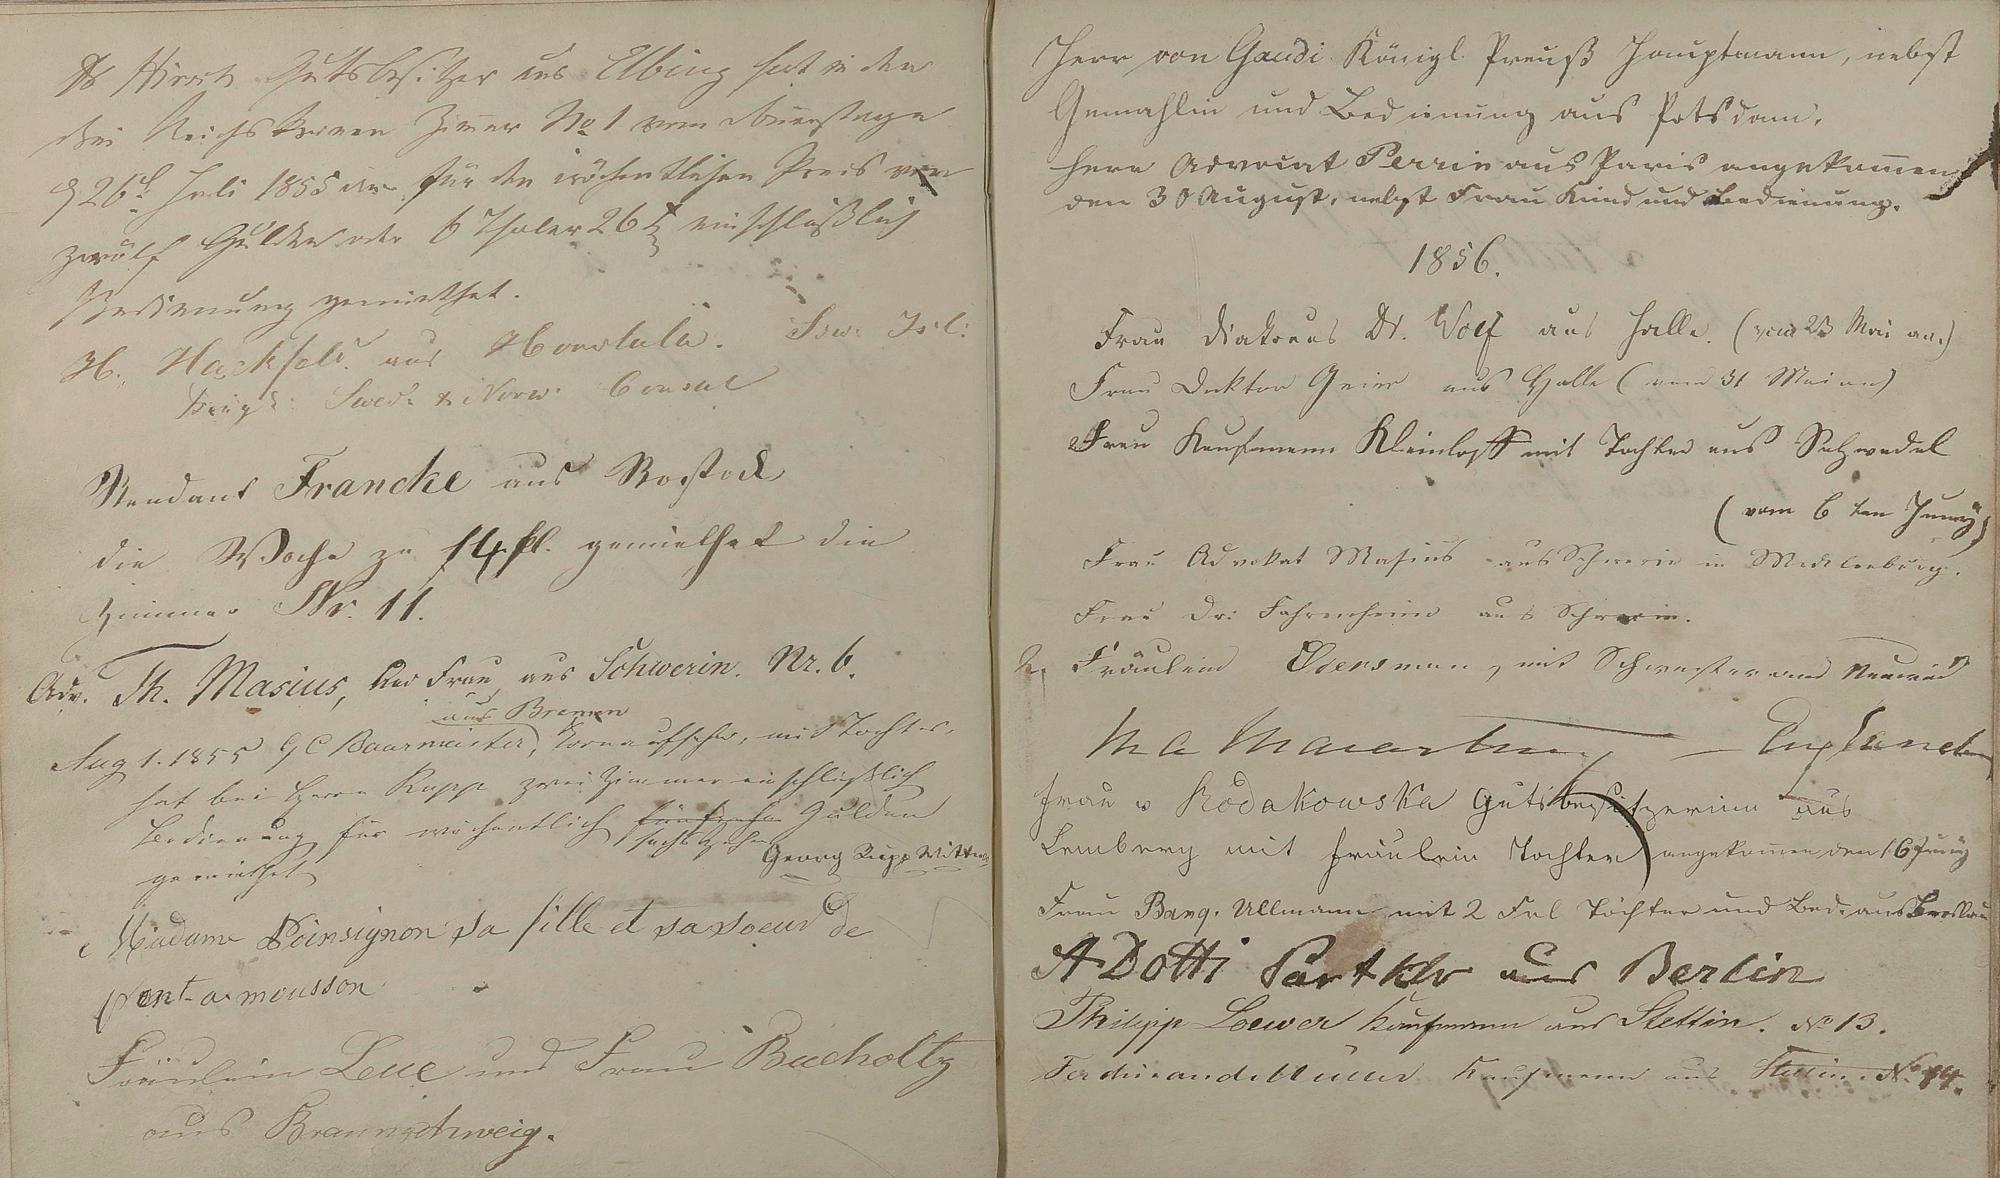 Hirsch Gutsbesitzer aus Elbing hat in den
drei Reichskronen Zimer No 1 vom Donnerstage
d 26t. Juli 1855 an für den wöchentlichen Preis von
zwölf Gulden oder 6 Thaler 26 einschließlich
Bedienung gemiethet.
H. Hackfeld. aus Honolulu. Sdw: Isl:
Swed: & Norw: Consul
Rendant Francke aus Rostock
die Woche zu 14 fl. gemiethet die
Zimmer Nr. 11.
Adv. Th. Masius, und Frau, aus Schwerin. Nr. 6.
aus Bremen
Aug 1. 1855 G C Baurmeister, Tonnaufseher, mit Tochter,
hat bei Herrn Rupp zwei Zimmer einschließlich
Bedienung für wöchentlich fünfzehn Gulden
sechszehn
gemiethet Georg Rupp Wittwe
Madame Poinsignon sa fille et sa soeur de
pont-a-mousson
Fräulein Leue und Frau Bucholtz
aus Braunschweig.
Herr von Gaudi Königl. Preuß Hauptmann, nebst
Gemahlin und Bedienung aus Potsdam.
Herr Advocat Perrin aus Paris angekomen
den 30 August, nebst Frau Kind und Bedienung.
1856.
Frau Diakonus Dr. Wolf aus Halle. (vom 23 Mai an.)
Frau Doktor Geier aus Halle (vom 31 Mai an)
Frau Kaufmann Kleinloff mit Tochter aus Salzwedel
(vom 6 ten Juny)
Frau Advokat Masius aus Schwerin in Mecklenburg.
Frau Dr: Fahrenheim aus Schwerin.
Fräulein mit Schwester aus Neuwied
England
Frau v Rodakowska Gutsbesitzerinn aus
Lemberg mit fräulein Tochter angekomen den 16 Juny
Frau Banq. Ullmann mit 2 Frl Töchter und Bed. aus Breslau
A Dotti Partklr aus Berlin
Philipp Loewer Kaufmann aus Stettin. No 13.
Ferdinand Müller Kaufmann aus Stettin. No 14.